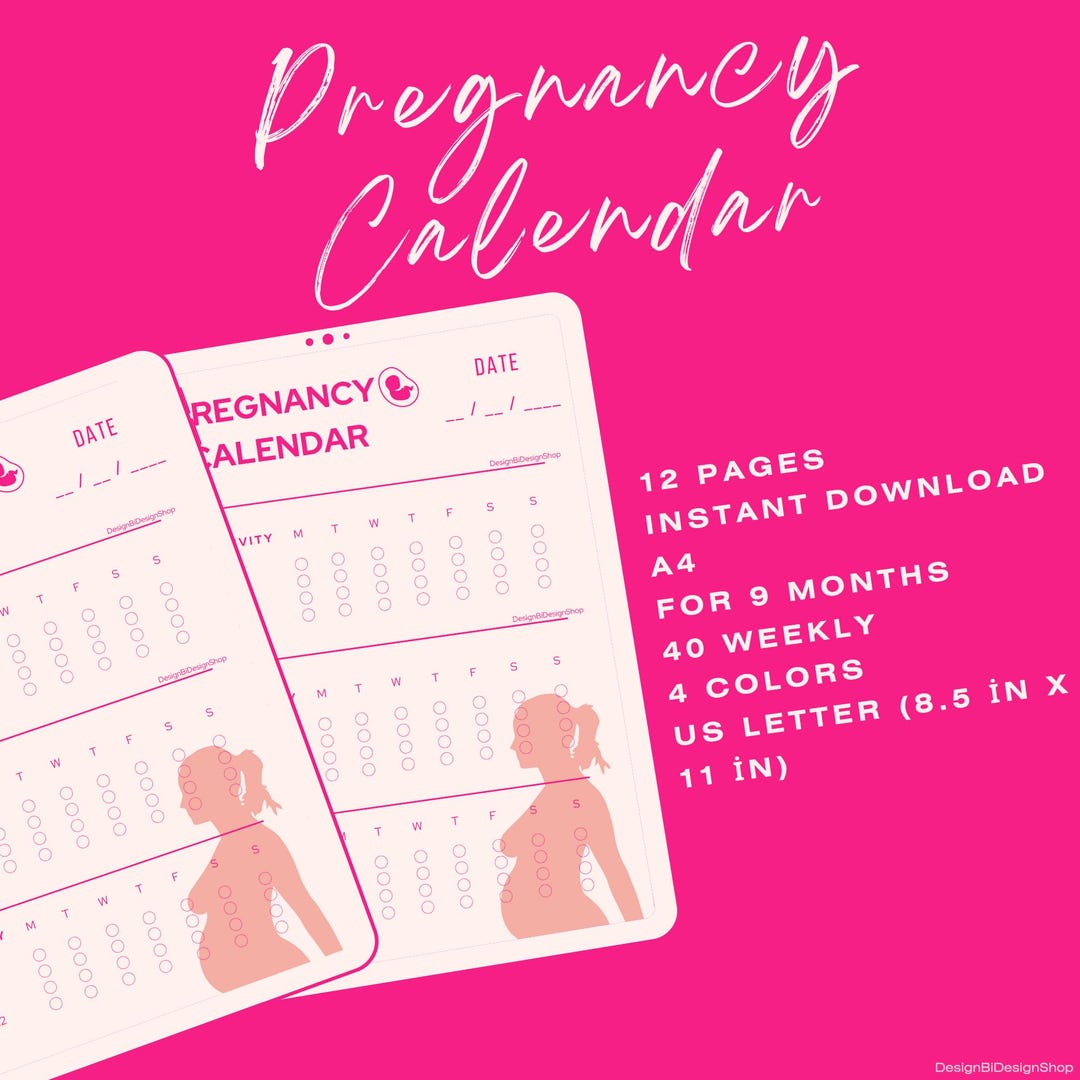 Pregnancy
Calendar
DATE
__ / __ / ____
DesignBiDesignShop
W T F S S
DesignBiDesignShop
T W T F S S
M T W T F S S
2
PREGNANCY
CALENDAR
DATE
__ / __ / ____
DesignBiDesignShop
VITY M T W T F S S
DesignBiDesignShop
M T W T F S S
M T W T F S S
12 PAGES
INSTANT DOWNLOAD
A4
FOR 9 MONTHS
40 WEEKLY
4 COLORS
US LETTER (8.5 İN X
11 İN)
DesignBiDesignShop